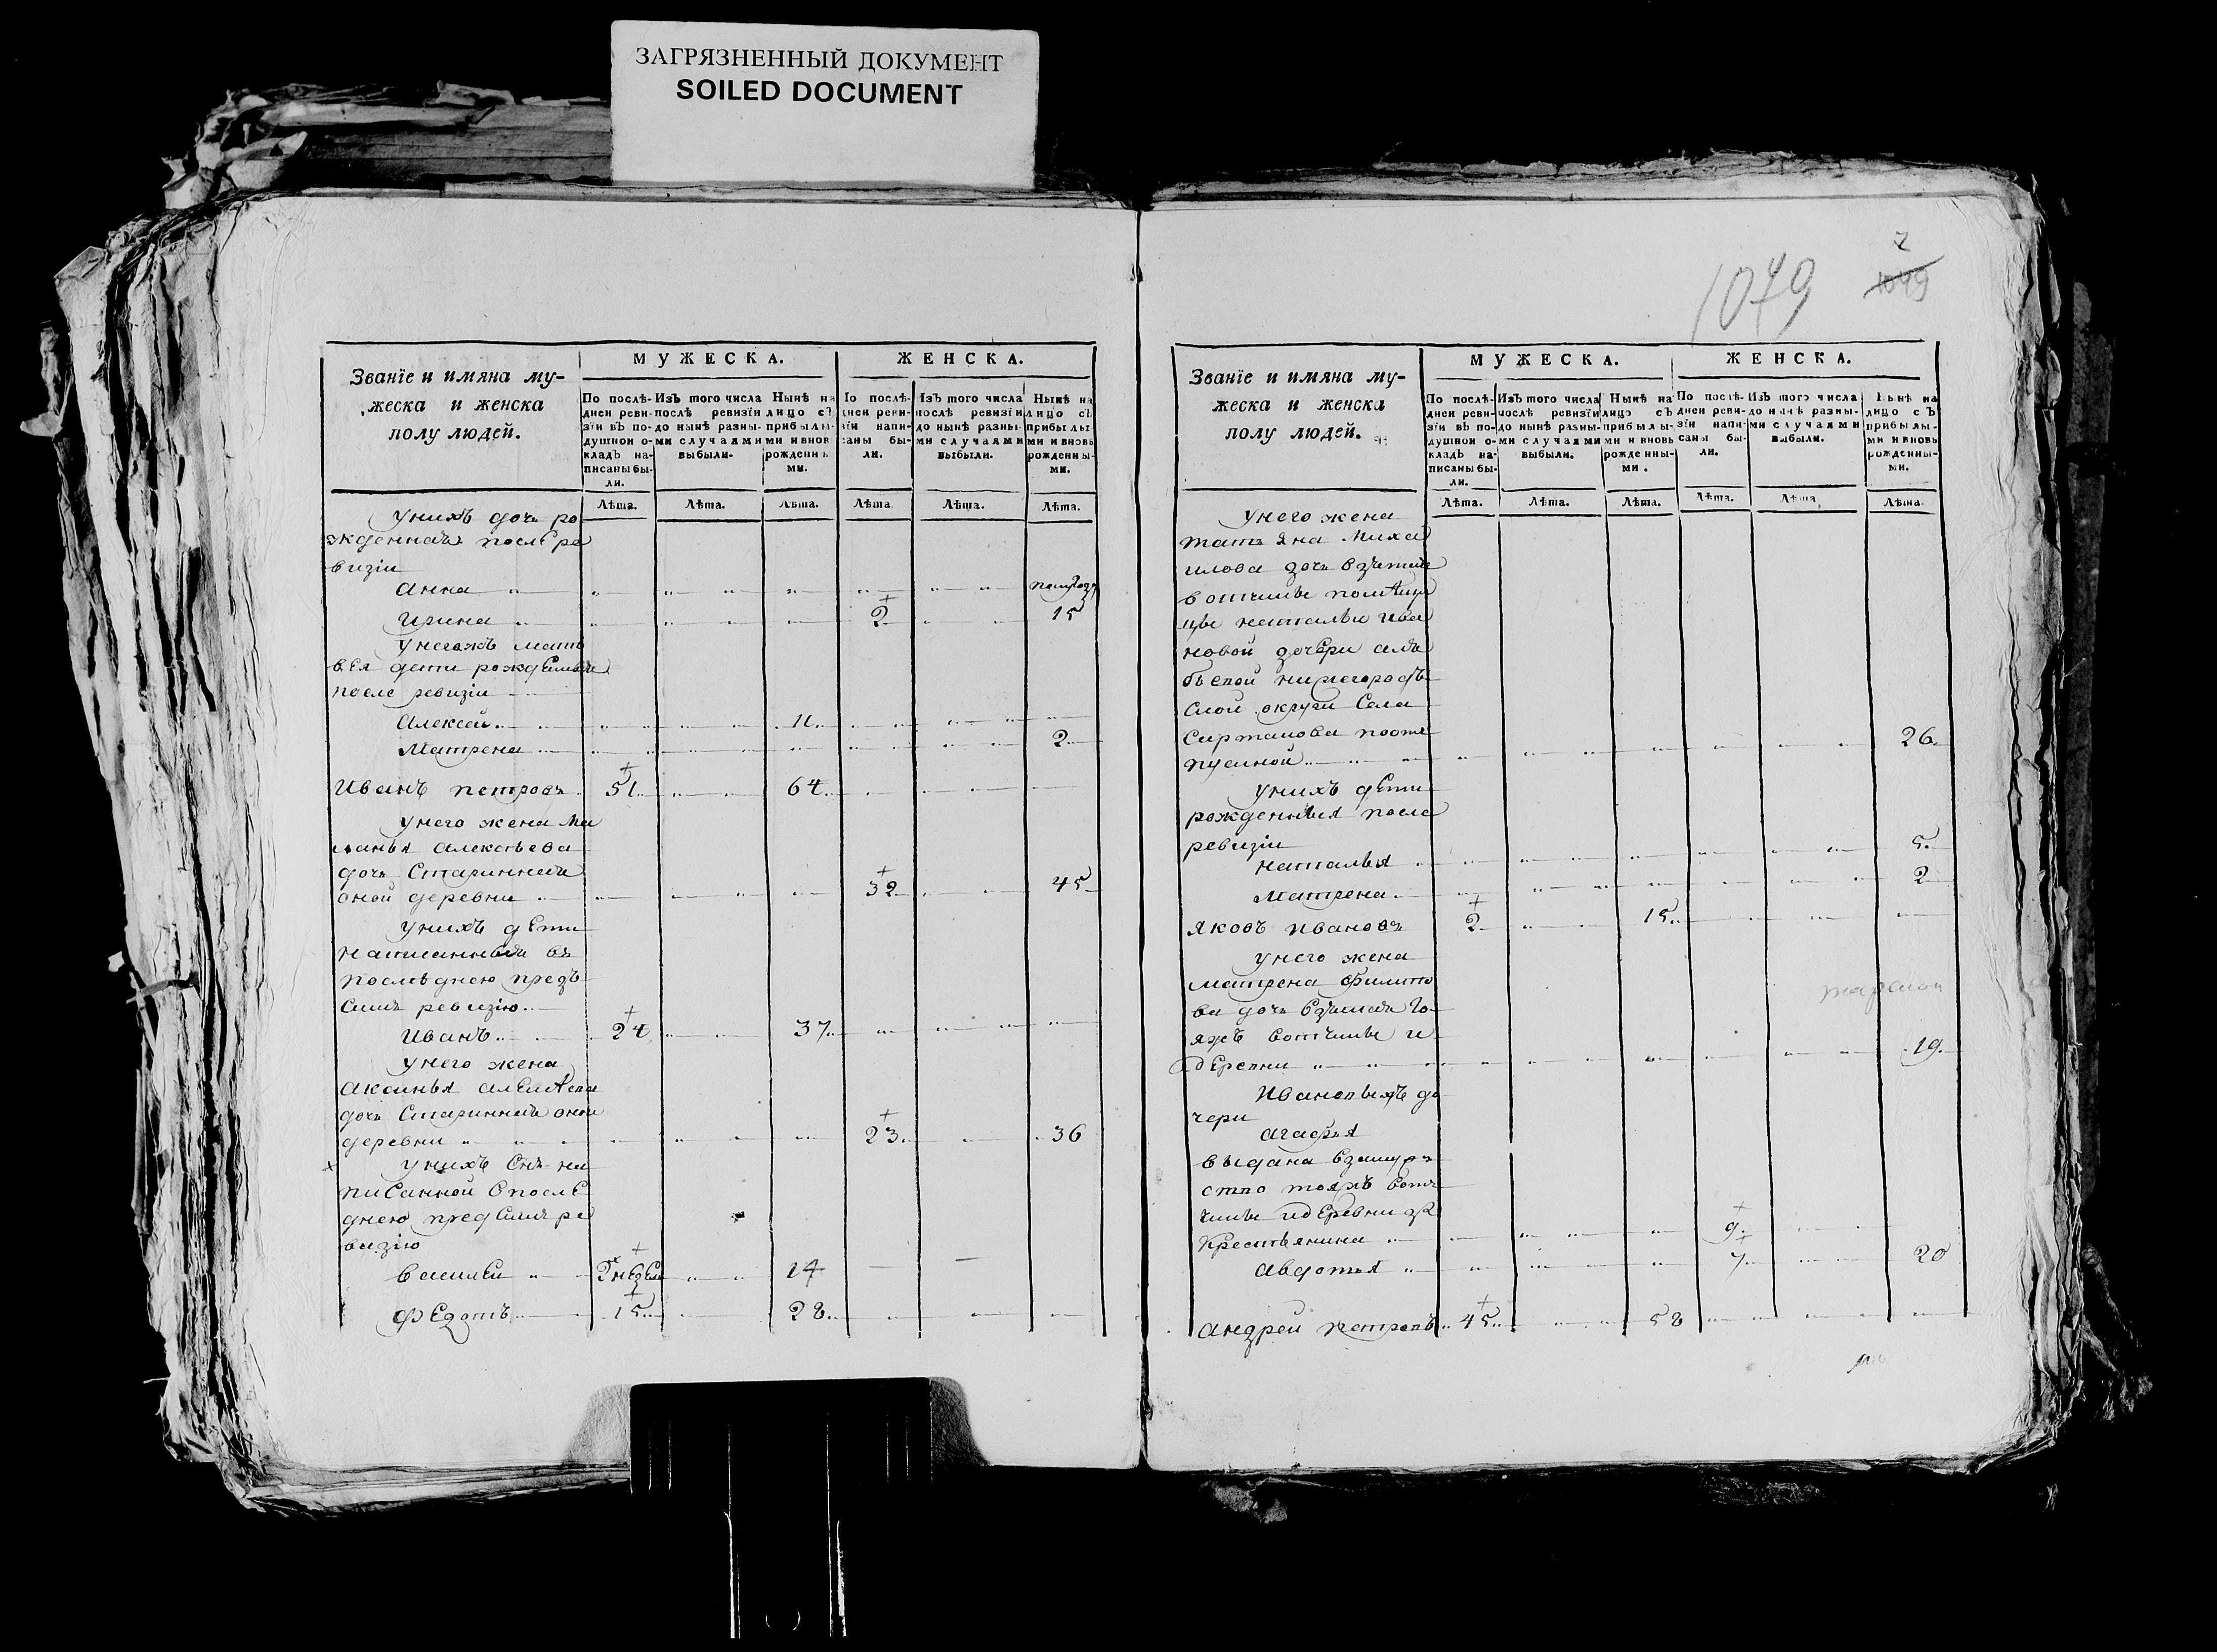 ЗАГРЯЗНЕННЫЙ ДОКУМЕНТ
SOILED DOCUMENT
Званїе и имяна му-
жеска и женска
полу людей.
МУЖЕСКА.
ЖЕНСКА.
По послѣ-
дней реви-
зїи въ по-
душной о-
кладъ на-
писаны бы-
ли.
Изъ того числа
послѣ ревизїи
до нынѣ разны-
ми случаями
выбыли.
Нынѣ на
лицо съ
прибылы-
ми и вновь
рожденны-
ми.
По послѣ-
дней реви-
зїи напи-
саны бы-
ли.
Изъ того числа
послѣ ревизїи
до нынѣ разны-
ми случаями
выбыли.
Нынѣ на
лицо съ
прибылы-
ми и вновь
рожденны-
ми.
Лѣта. Лѣта. Лѣта. Лѣта. Лѣта. Лѣта.
унихъ дочь ро
жденная после ре
визїи
анна полгода
ирина 2 15
унегожъ мат
вея дети рожденныя
после ревизїи
алексей 11
матрена 2
иванъ петровъ 51 64
унего жена ма
ланья алексѣева
дочь старинная
оной деревни 32 45
унихъ дети
написанныя въ
последнею предъ
симъ ревизїю
иванъ 24 37
унего жена
аксинья
дочь старинная оной
деревни 23 36
унихъ снъ на
писанной впосле
днею предсимъ ре
визїю
василей 2 недел 14
федотъ 15 28
7
1049
1049
Званїе и имяна му-
жеска и женска
полу людей.
МУЖЕСКА.
ЖЕНСКА.
По послѣ-
дней реви-
зїи въ по-
душной о-
кладъ на-
писаны бы-
ли.
Изъ того числа
послѣ ревизїи
до нынѣ разны-
ми случаями
выбыли.
Нынѣ на
лицо съ
прибылы-
ми и вновь
рожденны-
ми.
По послѣ-
дней реви-
зїи напи-
саны бы-
ли.
Изъ того числа
до нынѣ разны-
ми случаями
выбыли.
Нынѣ на
лицо съ
прибылы-
ми и вновь
рожденны-
ми.
Лѣта. Лѣта. Лѣта. Лѣта. Лѣта. Лѣта.
унего жена
татьяна миха
илова дочь взятая
вотчины помѣщи
цы натальи ива
новой дочери
нижегородъ
ской округи села
26
унихъ дети
рожденныя после
ревизїи
наталья 5
матрена 2
яковъ ивановъ 2 15
унего жена
матрена филипо
ва дочь взятая то
яжъ вотчины и
деревни 19
ивановыхъ до
чери
агафья
выдана взамуж
ство тояжъ вотч
чины идеревни за
крестьянина 9
авдотья 7 20
андрей петровъ 45 58